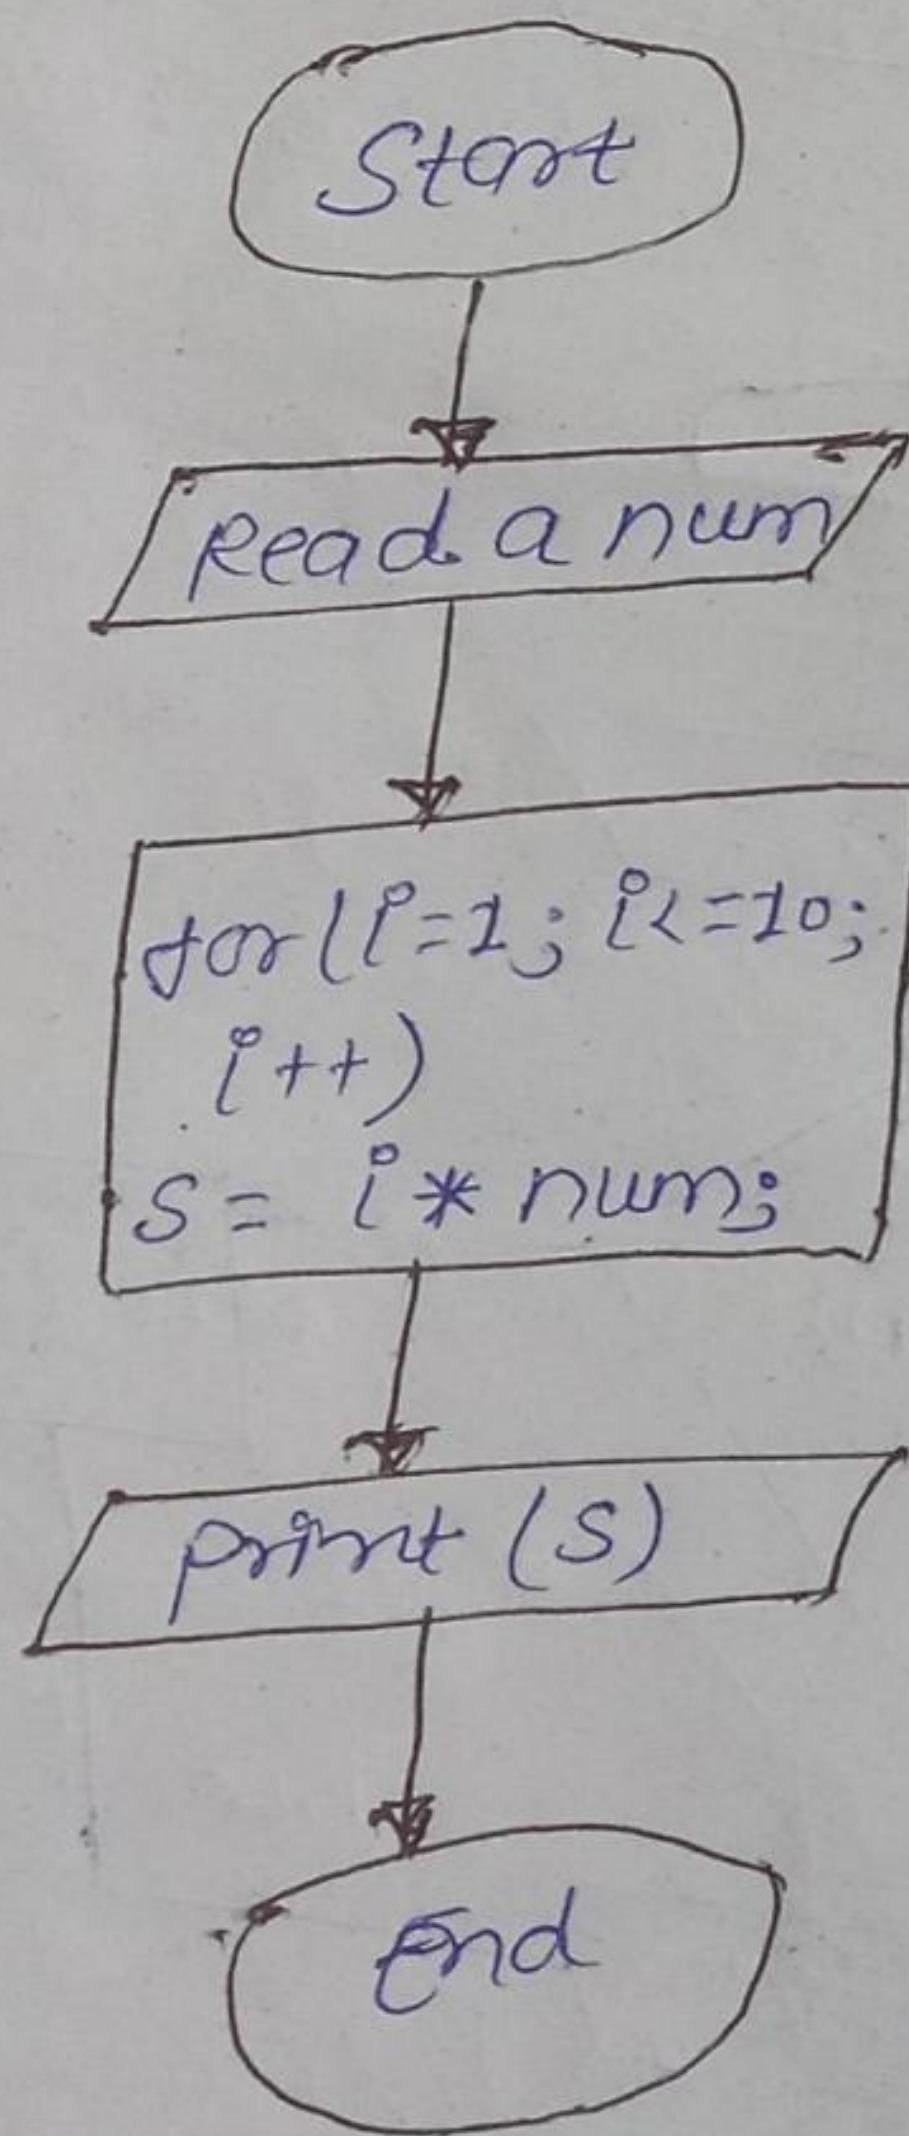 Start
Read a num
for(i=1; i<=10;
i++)
S = i * num;
print (S)
End